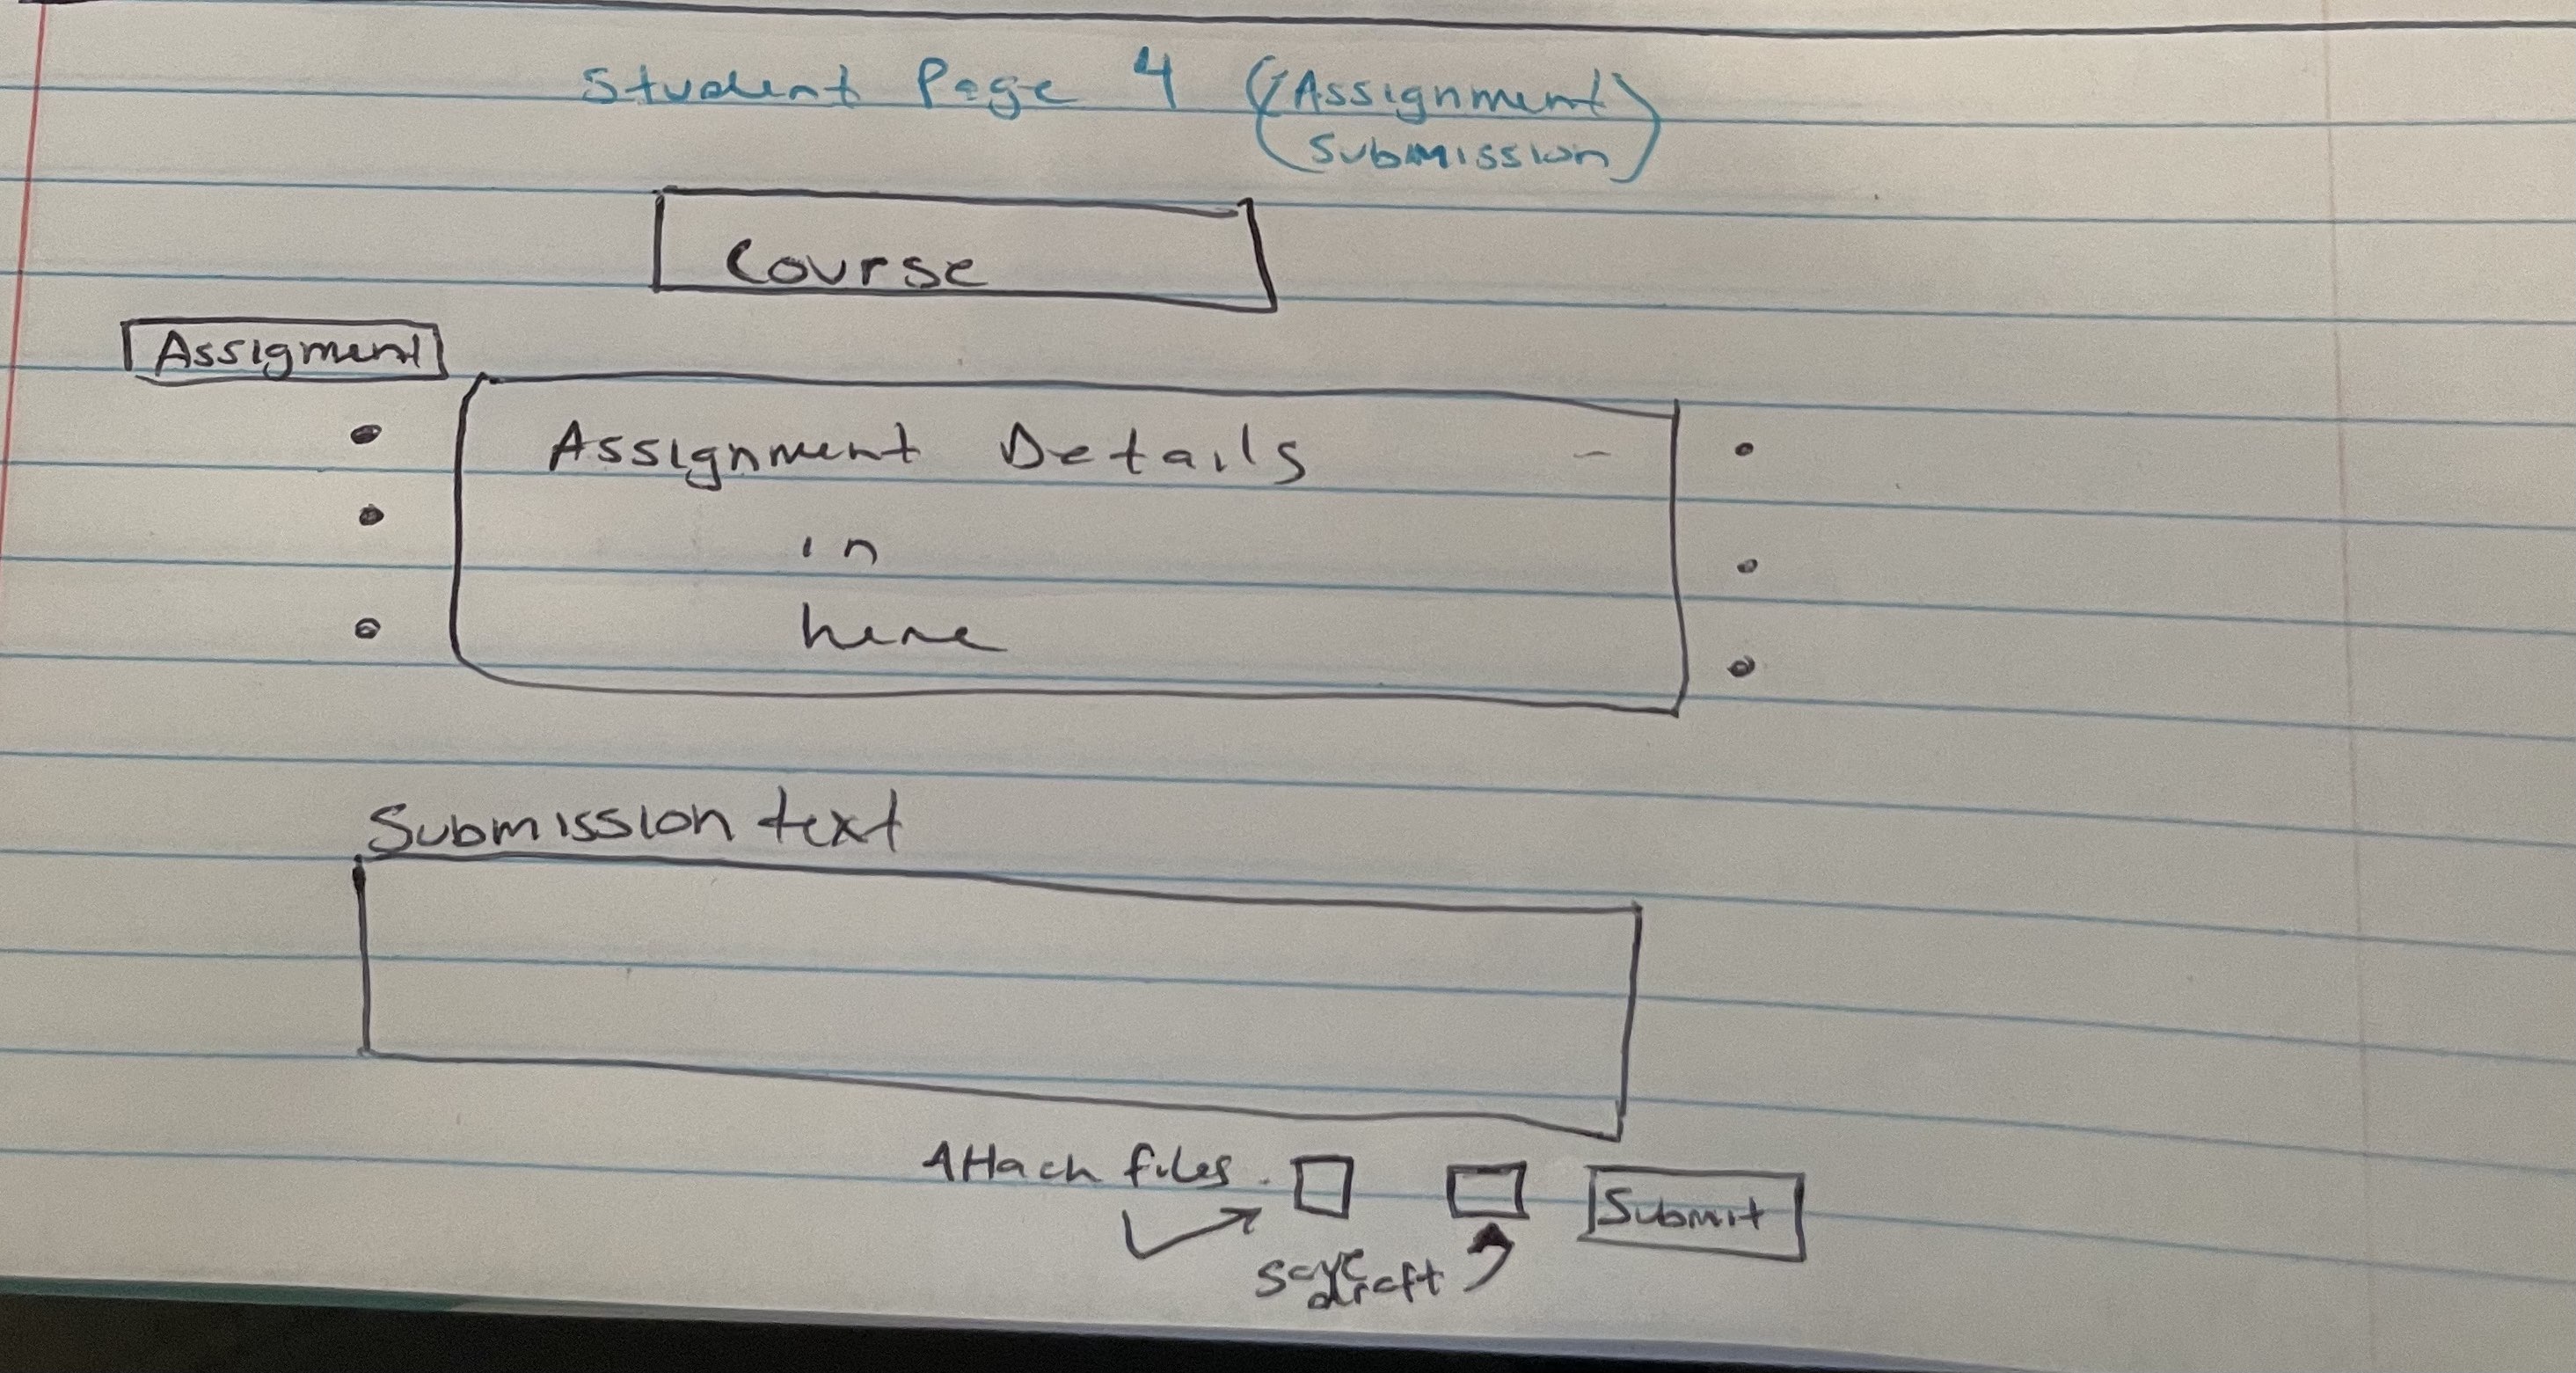 Student Page 4 (Assignment
Submission)
Course
Assigment
Assignment Details
in
here
Submission text
Attach files
Submit
save
draft